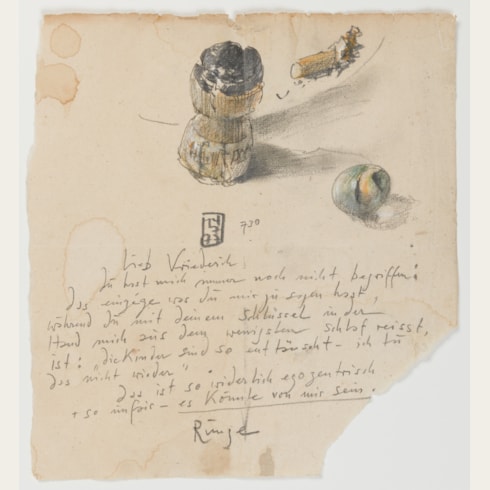 730
lieb Vriederich,
du hast mich immer noch nicht begriffen!
das einzige was du mir zu sagen hast,
während du mit deinem Schlüssel in der
Hand mich aus dem wenigsten Schlaf reisst,
ist: "die Kinder sind so enttäuscht - ich tu
das nicht wieder"
das ist so widerlich egozentrisch
+ so unfair - es könnte von mir sein.
Runge